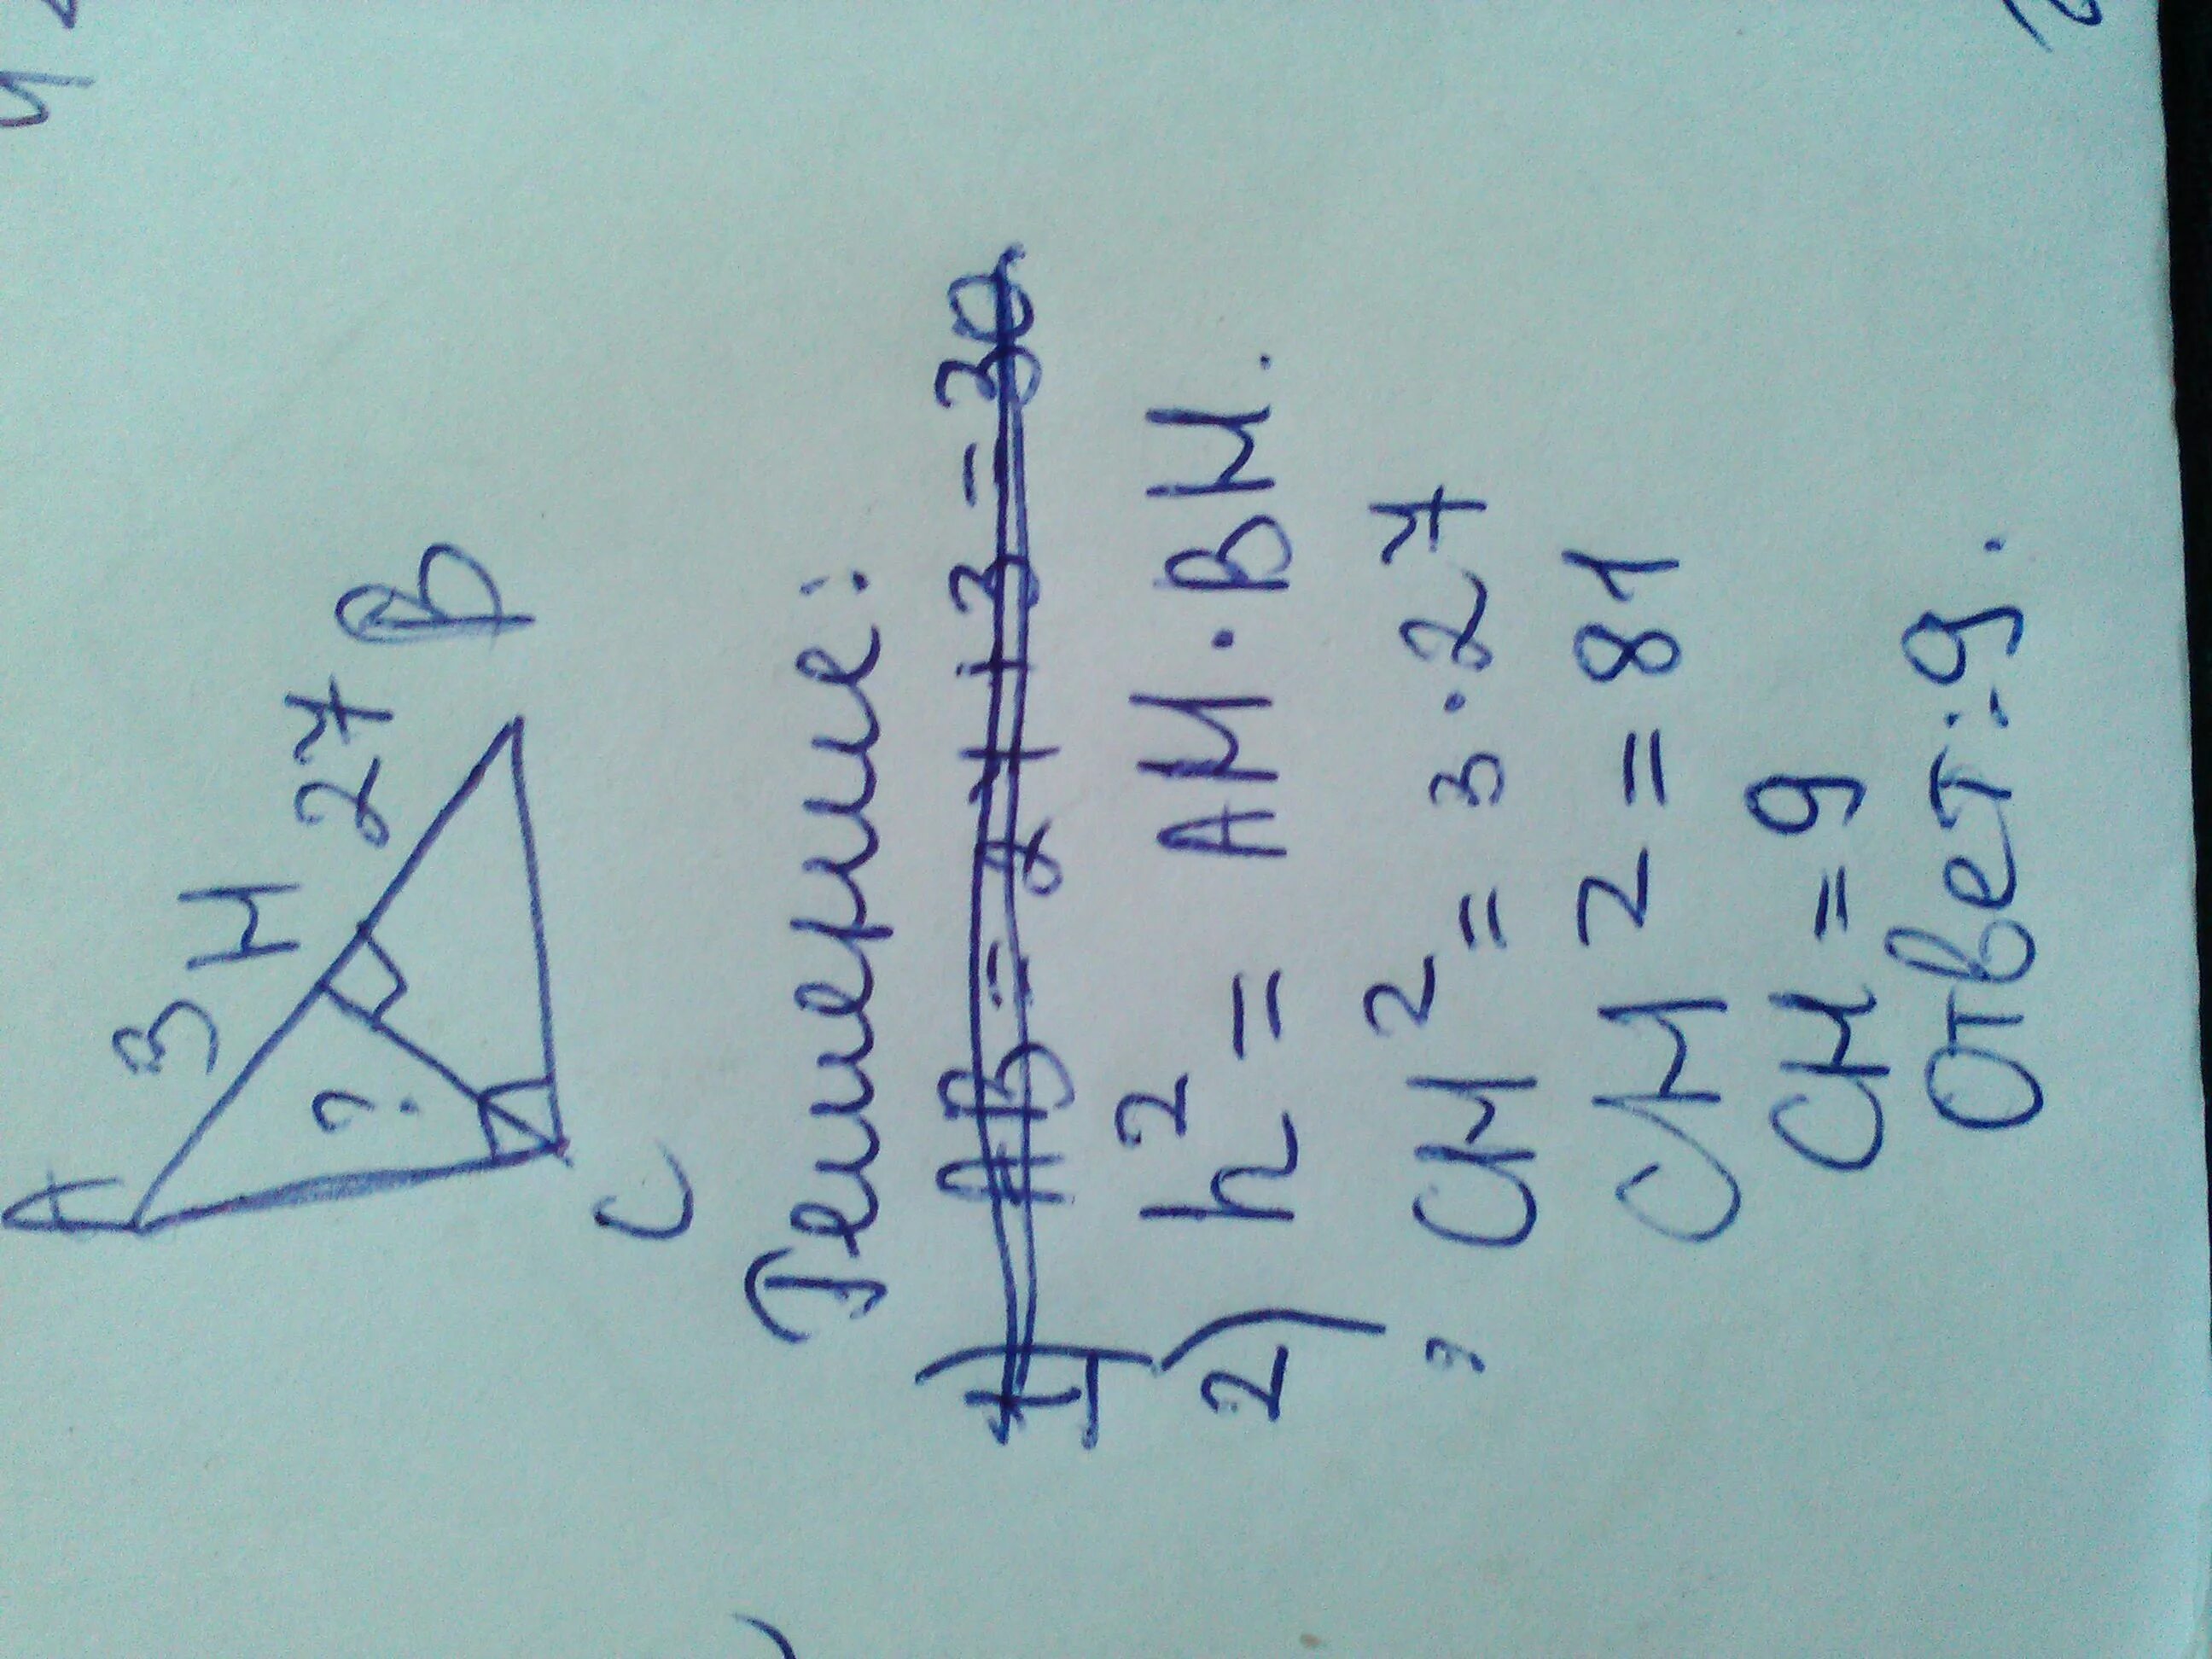 A
3
H
27
B
?
C
Решение:
1) AB = 27 + 3 = 30
2) h² = AH · BH.
CH² = 3 · 27
CH² = 81
CH = 9
Ответ: 9.